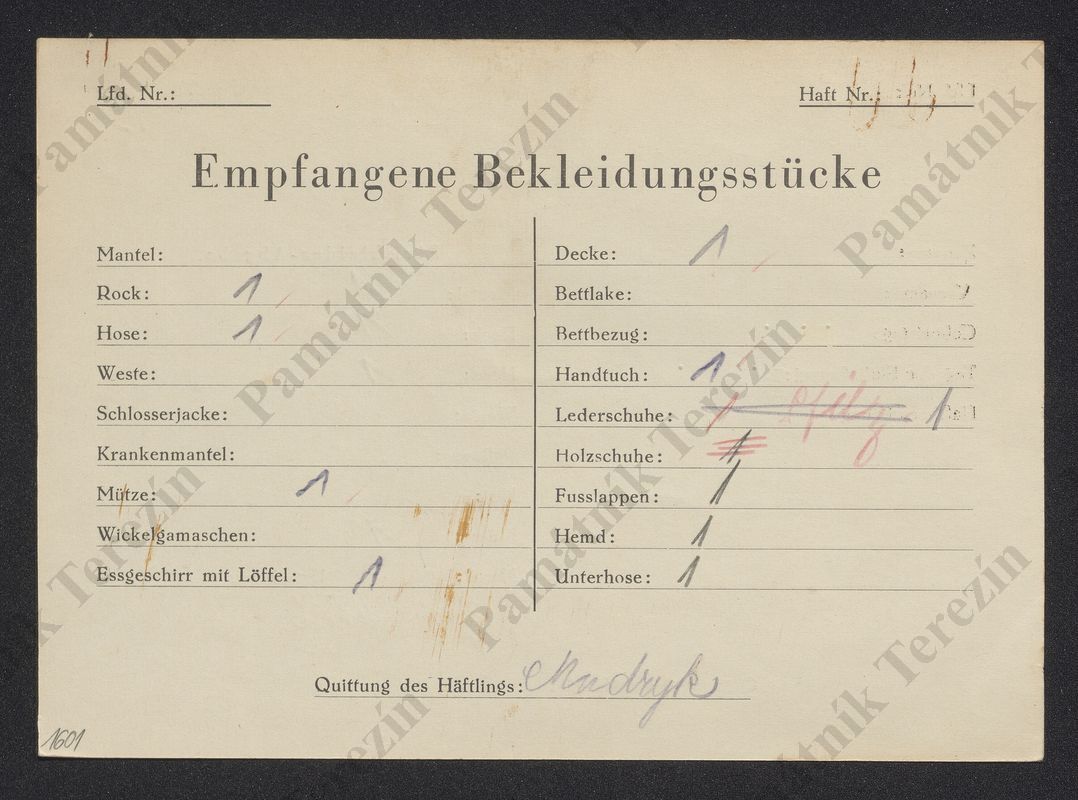 Lfd. Nr.:
Haft Nr.:
Empfangene Bekleidungsstücke
Mantel:
Rock: 1
Hose: 1
Weste:
Schlosserjacke:
Krankenmantel:
Mütze: 1
Wickelgamaschen:
Essgeschirr mit Löffel: 1
Decke: 1
Bettlake:
Bettbezug:
Handtuch: 1
Lederschuhe: 1
Holzschuhe: 1
Fusslappen: 1
Hemd: 1
Unterhose: 1
Quittung des Häftlings: Mudryk
1601
Památník Terezín